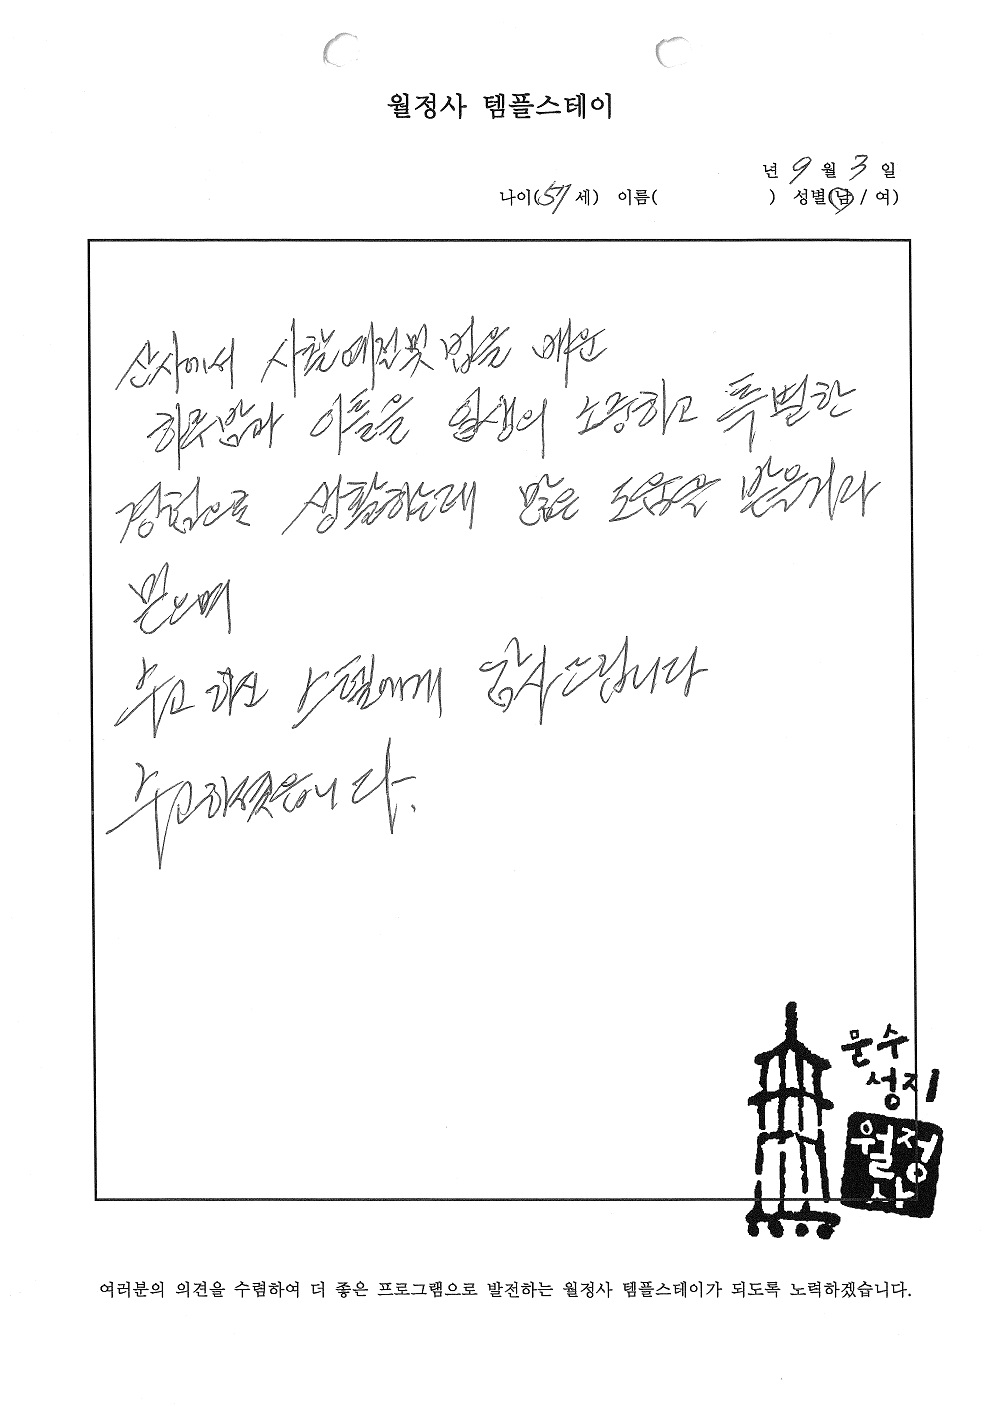 월정사 템플스테이
년 9 월 3 일
나이(57 세) 이름( ) 성별(남 / 여)
산사에서 사찰예절및 법을 배운
하루밤과 이틀을 일생의 소중하고 특별한
경험으로 생활하는데 많은 도움을 받을거라
믿으며
수고 하신 스텝에게 감사드립니다
수고하셧읍니다.
문수
성지
월정
사
여러분의 의견을 수렴하여 더 좋은 프로그램으로 발전하는 월정사 템플스테이가 되도록 노력하겠습니다.